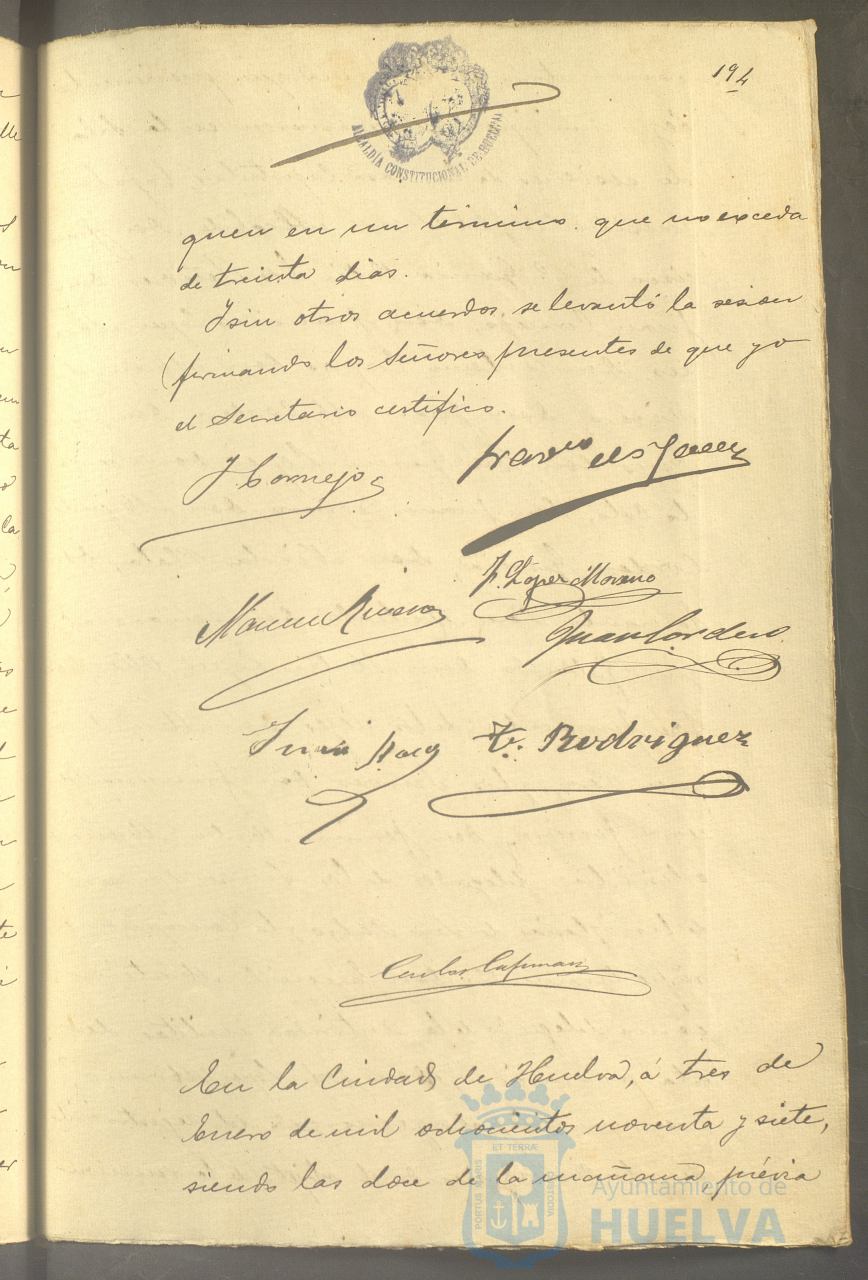 194
ALCALDÍA CONSTITUCIONAL DE HUELVA
quen en un término que no exceda
de treinta dias.
Y sin otros acuerdos, se levantó la sesion
firmando los Señores presentes de que yo
el Secretario certifico.
J Cornejo
F. López Moreno
Juan Cordero
T. Rodriguez
En la Ciudad de Huelva, á tres de
Enero de mil ochocientos noventa y siete,
siendo las doce de la mañana, prévia
PORTUS MARIS
ET TERRÆ
CUSTODIA
Ayuntamiento de
HUELVA